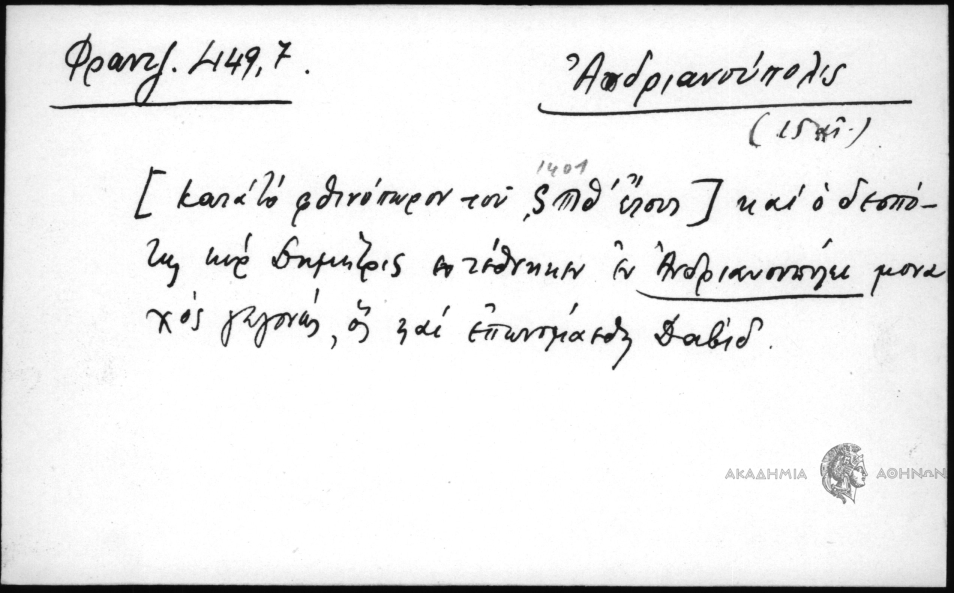 Φραντζ. 449,7.
Ἀνδριανούπολις
(15 αἰ.)
1401
[κατὰ τὸ φθινόπωρον τοῦ ϛ Ϡ οθ´ ἔτους] καὶ ὁ δεσπό-
της κὺρ Δημήτρις ἐτέθνηκεν ἐν Ἀνδριανουπόλει μονα
χὸς γεγονώς, ὃς καὶ ἐπωνομάσθη Δαβίδ.
ΑΚΑΔΗΜΙΑ ΑΘΗΝΩΝ